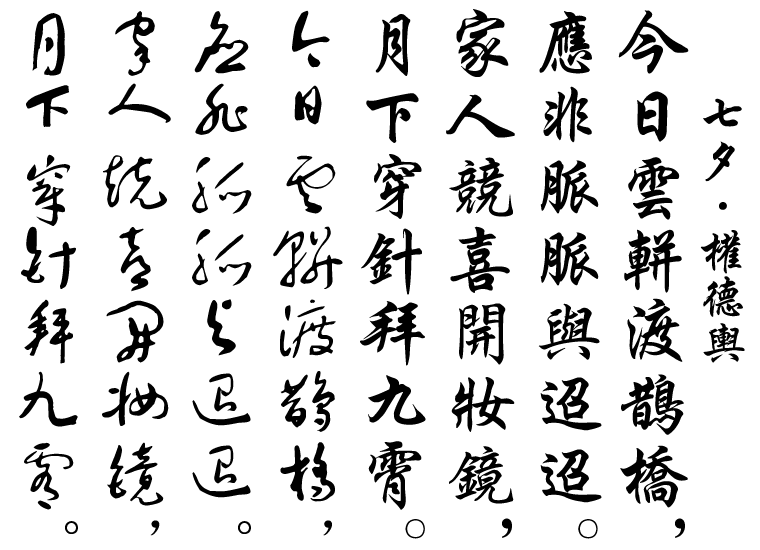 七夕·權德輿
今日雲軿渡鵲橋，
應非脈脈與迢迢。
家人競喜開妝鏡，
月下穿針拜九霄。
今日雲軿渡鵲橋，
應非脈脈與迢迢。
家人競喜開妝鏡，
月下穿針拜九霄。